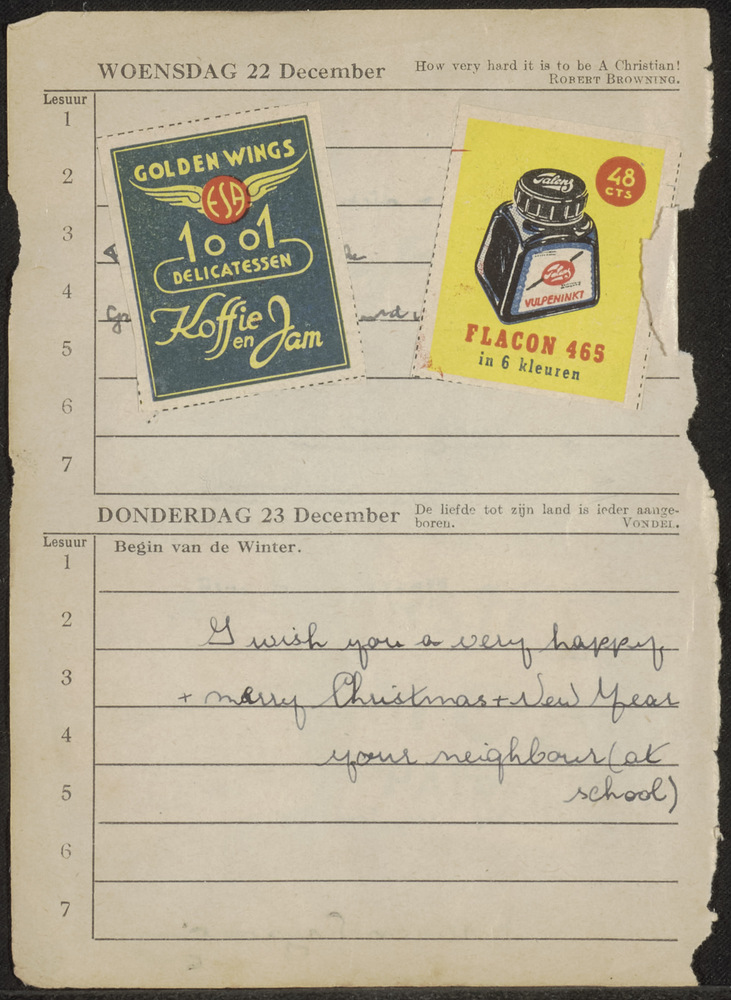 WOENSDAG 22 December
How very hard it is to be A Christian!
ROBERT BROWNING.
Lesuur
1
2
3
4
5
6
7
GOLDEN WINGS
ESA
1001
DELICATESSEN
Koffie
en
Jam
Talens
48
CTS
Talens
VULPENINKT
FLACON 465
in 6 kleuren
DONDERDAG 23 December
De liefde tot zijn land is ieder aange-
boren.
VONDEL.
Lesuur
1
Begin van de Winter.
2
I wish you a very happy
3
+ merry Christmas + New Year
4
your neighbour (at
5
school)
6
7